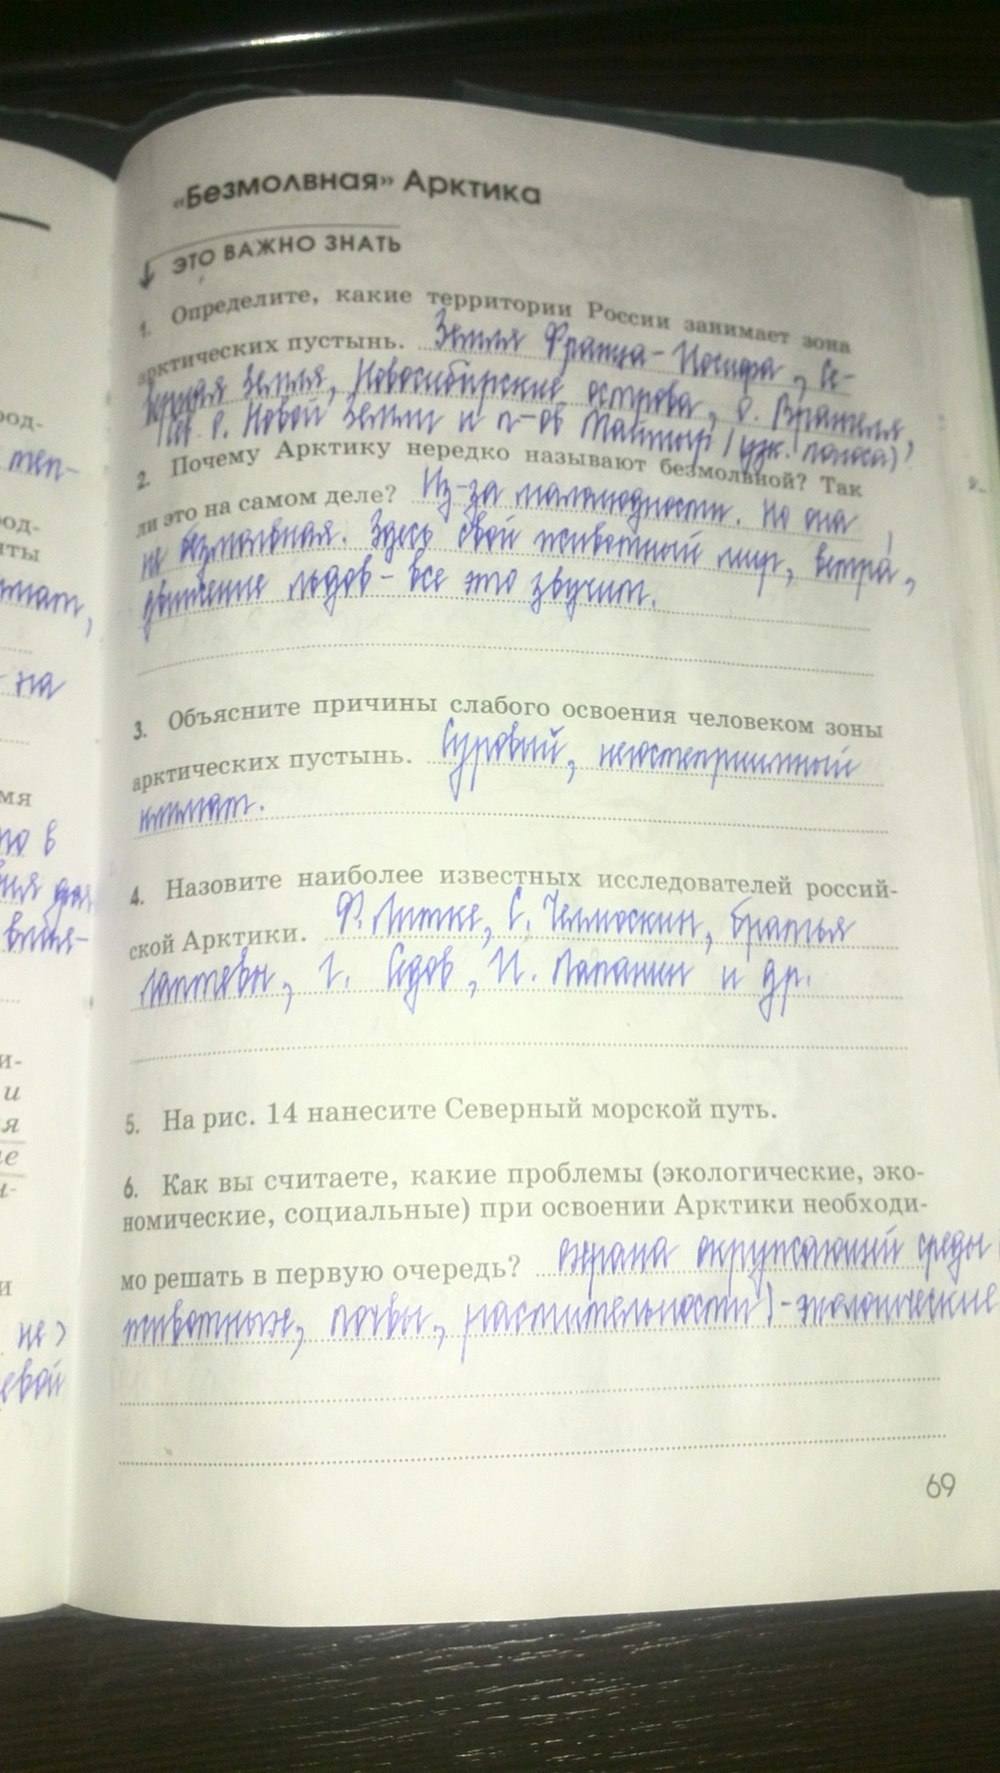 «Безмолвная» Арктика
ЭТО ВАЖНО ЗНАТЬ
1. Определите, какие территории России занимает зона
арктических пустынь. Земля Франца-Иосифа, Се-
верная Земля, Новосибирские острова, о. Врангеля,
Сев. о. Новой Земли и п-ов Таймыр (узк. полоса)
2. Почему Арктику нередко называют безмолвной? Так
ли это на самом деле? Из-за малолюдности. Но она
не безмолвная. Здесь свой животный мир, ветра,
движение льдов - все это звучит.
3. Объясните причины слабого освоения человеком зоны
арктических пустынь. Суровый, негостеприимный
климат.
4. Назовите наиболее известных исследователей россий-
ской Арктики. Ф. Литке, С. Челюскин, братья
Лаптевы, Г. Седов, И. Папанин и др.
5. На рис. 14 нанесите Северный морской путь.
6. Как вы считаете, какие проблемы (экологические, эко-
номические, социальные) при освоении Арктики необходи-
мо решать в первую очередь? охрана окружающей среды
животные, почвы, растительности) - экологические
69